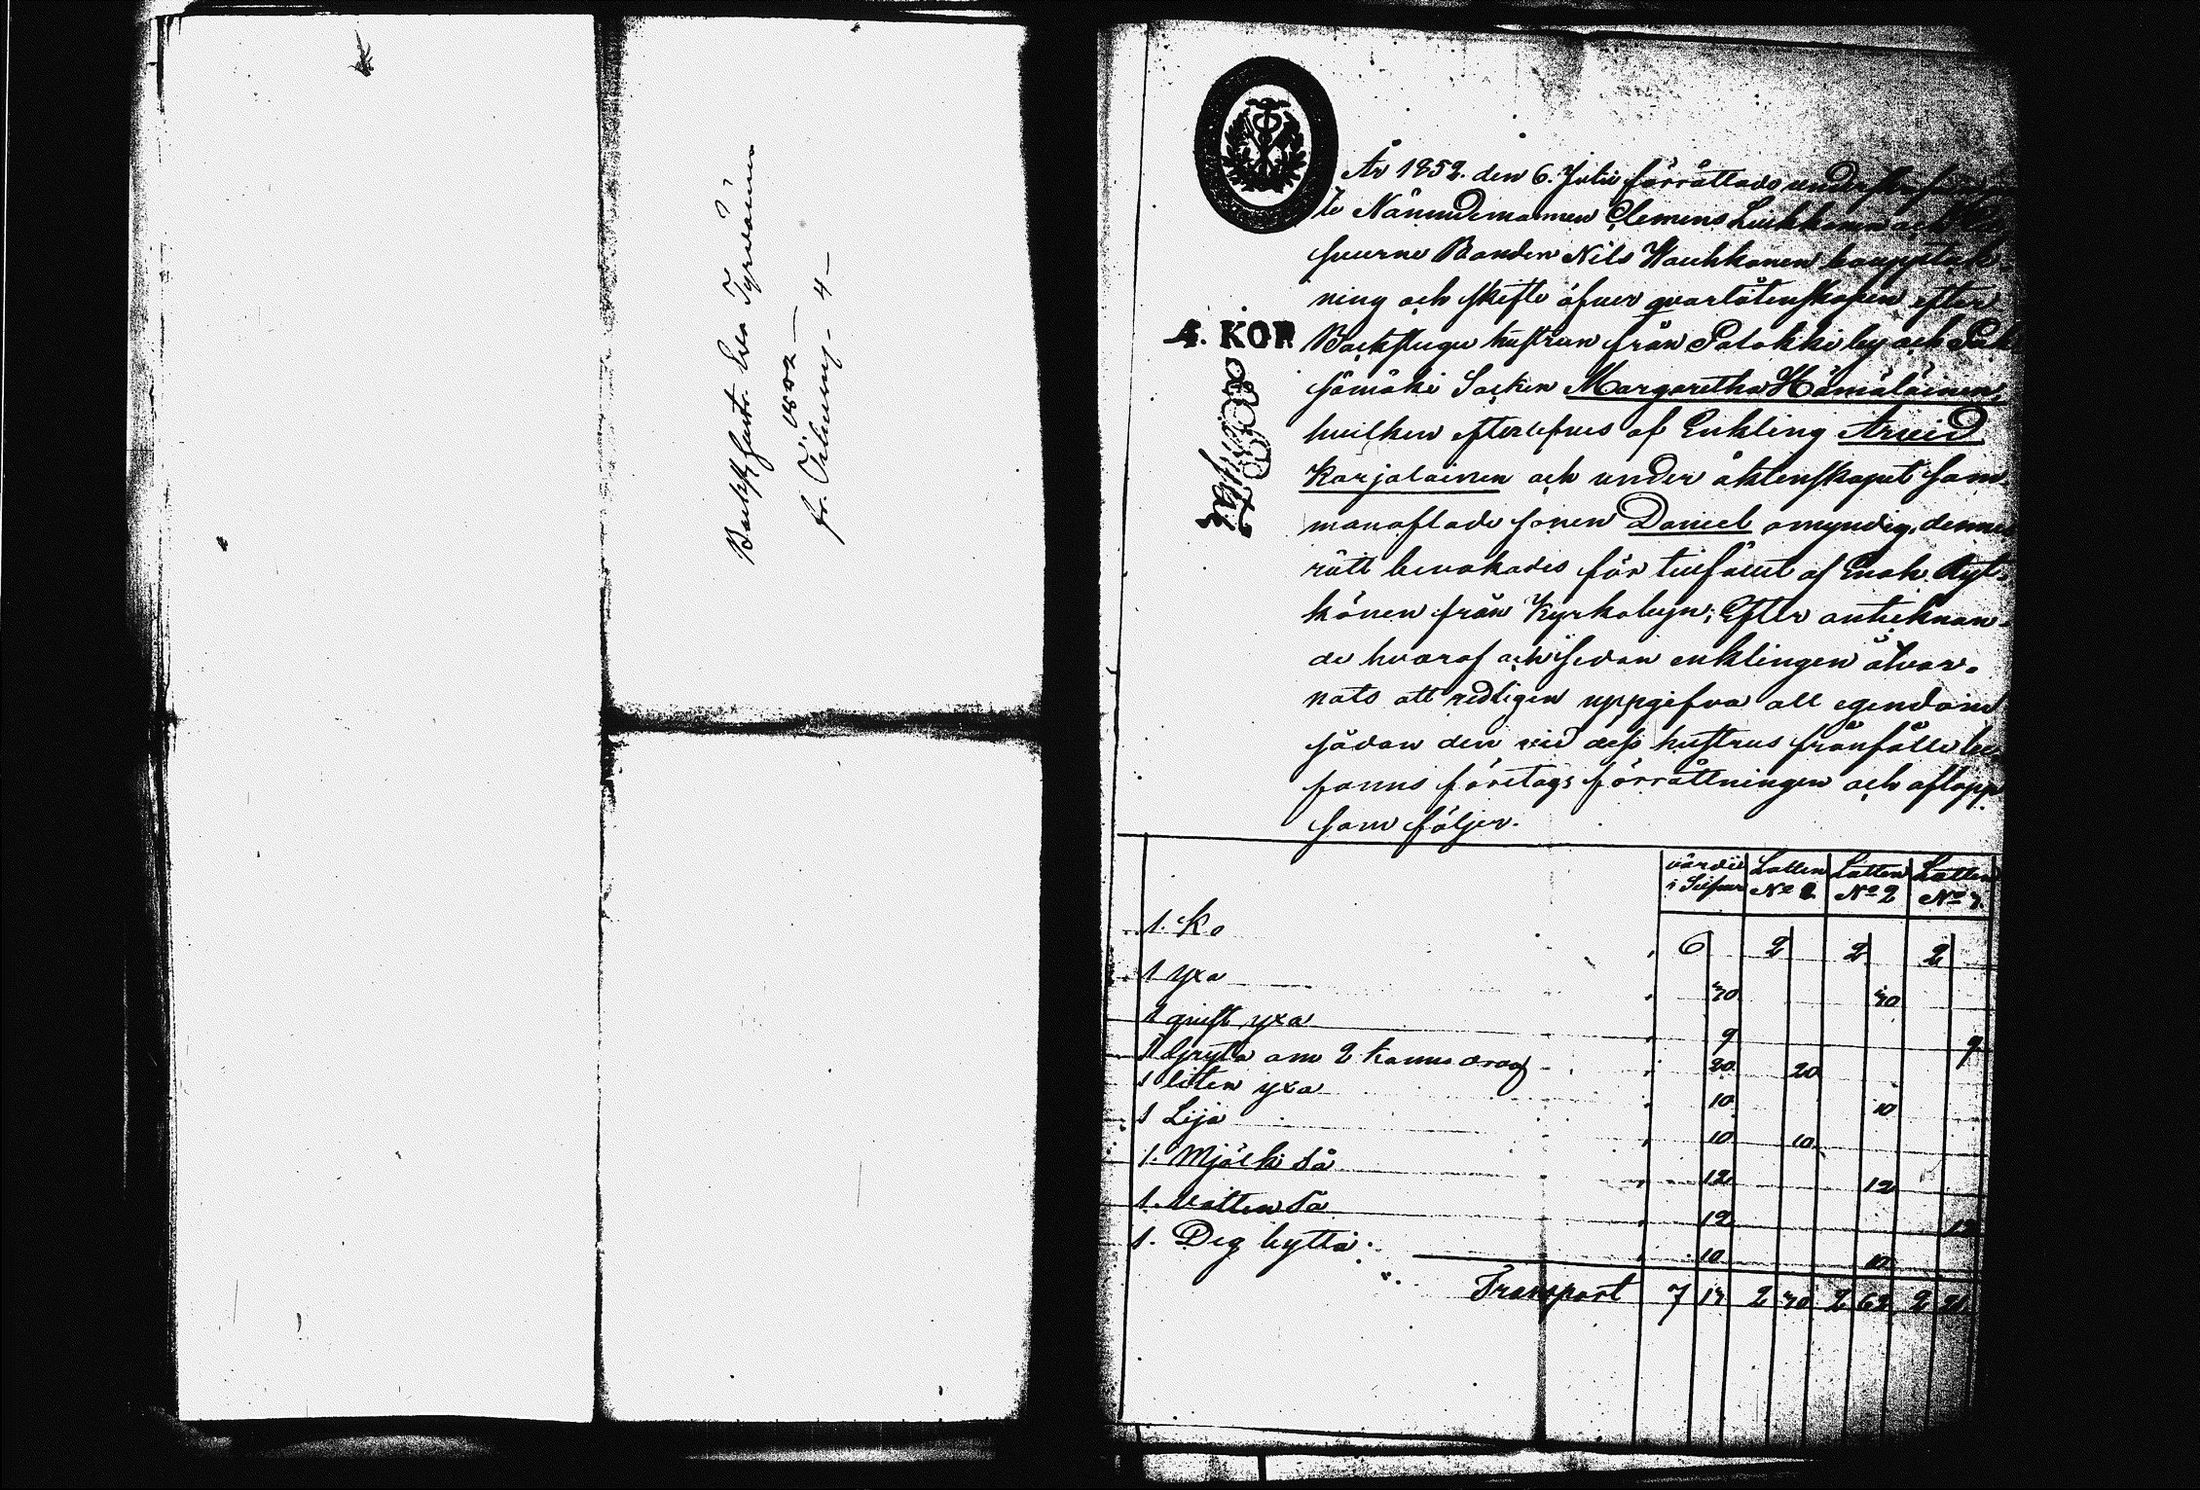 Backst. hust. Eva Tyrväinen
fr. Östering 4
4. KOP.
År 1852. den 6. Julii förrättade
te Nämndemannen Clemens Luikkonen och
svurne Bonden Nils Haukkanen boupptek-
ning och skifte öfver qvarlåtenskapen efter
Backstugu hustrun från Polokki by och
sämäki Socken Margaretha Hämäläinen,
hvilken efterlefves af Enkling Arvid
Karjalainen och under äktenskapet sam-
manaflade sonen Daniel omyndig, dennes
rätt bevakades för tillfället af Enok Ryt-
könen från Kyrkobyn; Efter anteknan-
de hvaraf och sedan enklingen åtvar-
nats att redligen uppgifva all egendom
sådan den vid dess hustrus frånfälle be-
fanns företogs förrättningen och aflopp
som följer.
värdie i Silfver Lotten No 1 Lotten No 2 Lotten No 3
1. Ko 6 2 2 2
1 yxa 30 30
1 qvist yxa 9 9
1 Gryta om 2 kannor 20 20
1 liten yxa 10 10
1 Lija 10 10
1. Mjölk så 12 12
1. Vatten så 12 12
1. Deg bytta 10 10
Transport 7 13 2 30 2 62 2 21